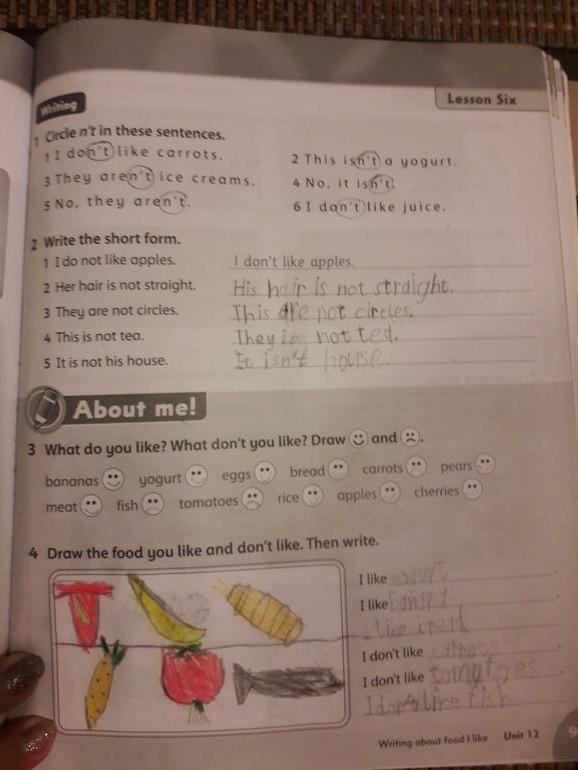 Lesson Six
Writing
1 Circle n't in these sentences.
1 I don't like carrots.
2 This isn't a yogurt.
3 They aren't ice creams.
4 No, it isn't.
5 No, they aren't.
6 I don't like juice.
2 Write the short form.
1 I do not like apples. I don't like apples.
2 Her hair is not straight. His hair is not straight.
3 They are not circles. This are not circles.
4 This is not tea. They is not tea.
5 It is not his house. It isn't house.
About me!
3 What do you like? What don't you like? Draw and .
bananas yogurt eggs bread carrots pears
meat fish tomatoes rice apples cherries
4 Draw the food you like and don't like. Then write.
I like yogurt .
I like banana .
I like bread
I don't like carrots .
I don't like tomatoes .
I don't like fish
Writing about food I like Unit 12 9